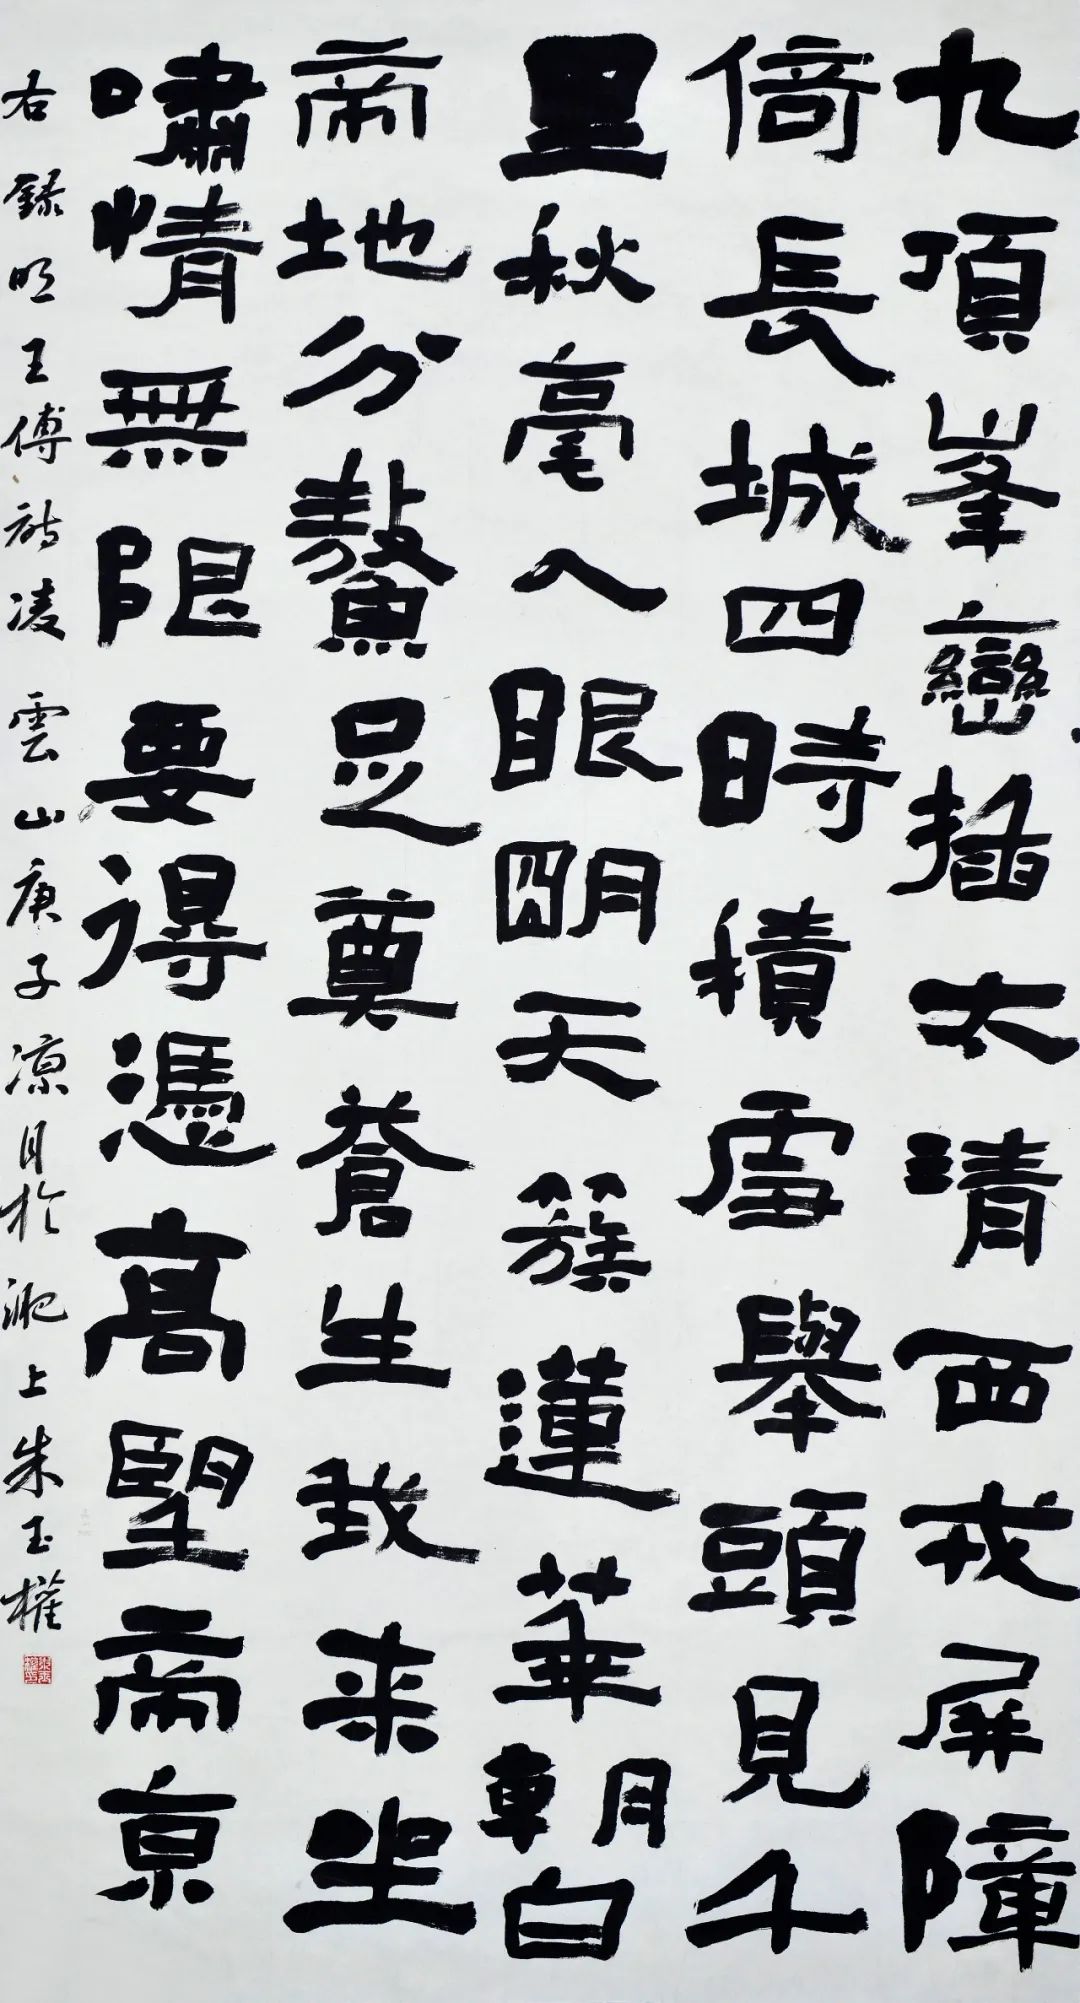 九頂峯巒插太清西戎屏障
倚長城四時積雪舉頭見千
里秋毫入眼明天簇蓮華朝白
帝地分鼇足奠蒼生我来坐
嘯情無限要得憑高望帝京
右錄明王傅詩凌雲山庚子涼月於淝上朱玉權